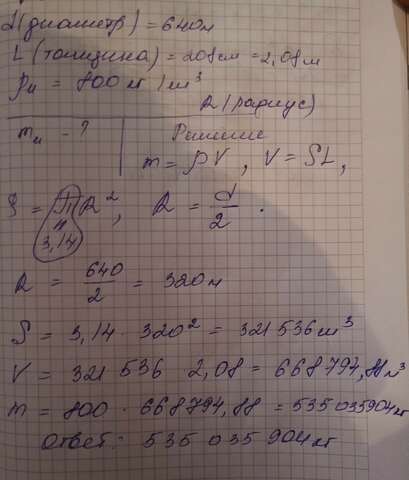 d (диаметр) = 640м
L (толщина) = 208см = 2,08м
ρи = 800 кг/м³
R (радиус)
mи - ?
Решение
m = ρV, V = SL,
S = πR², R = d/2.
π
3,14
R = 640/2 = 320м
S = 3,14 · 320² = 321 536 м³
V = 321 536 2,08 = 668794,88м³
m = 800 · 668794,88 = 535035904кг
Ответ: 535 035 904кг